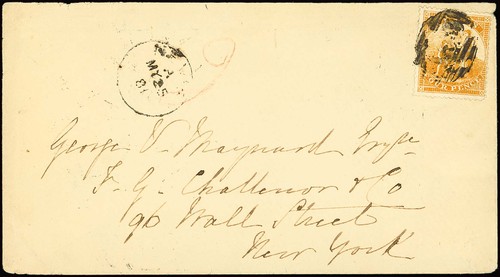 A
MY 25
81
PENCE
George V. Maynard Esqre
F. G. Challenor & Co
96 Wall Street
New York